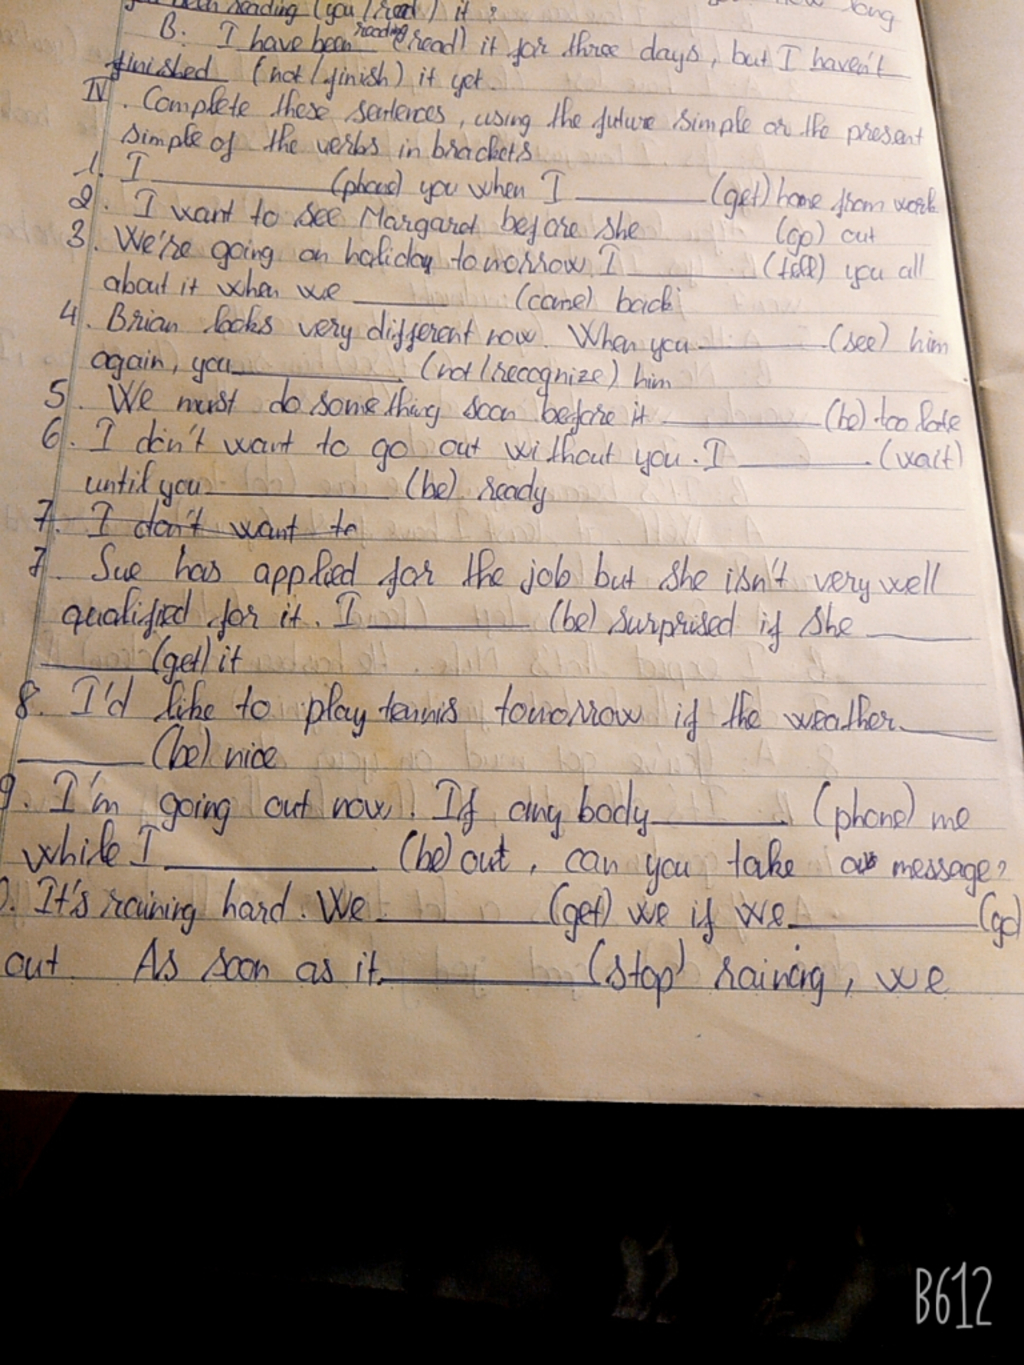 been reading (you / read) it? long
B. I have been reading (read) it for three days, but I haven't
finished (not / finish) it yet.
IV. Complete these sentences, using the future simple or the present
simple of the verbs in brackets
1. I ______ (phone) you when I ______ (get) home from work
2. I want to see Margaret before she (go) out
3. We're going on holiday tomorrow. I ______ (tell) you all
about it when we ______ (come) back
4. Brian looks very different now. When you ______ (see) him
again, you ______ (not / recognize) him
5. We must do something soon before it ______ (be) too late
6. I don't want to go out without you. I ______ (wait)
until you ______ (be) ready
7. I don't want to
7. Sue has applied for the job but she isn't very well
qualified for it. I ______ (be) surprised if she ______
______ (get) it
8. I'd like to play tennis tomorrow if the weather ______
______ (be) nice
9. I'm going out now. If any body ______ (phone) me
while I ______ (be) out, can you take a message?
0. It's raining hard. We ______ (get) we if we ______ (go)
out. As soon as it ______ (stop) raining, we
B612